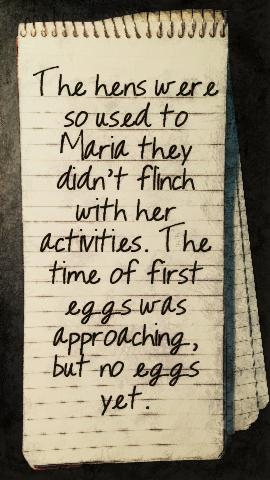 The hens were
so used to
Maria they
didn't flinch
with her
activities. The
time of first
eggs was
approaching,
but no eggs
yet.